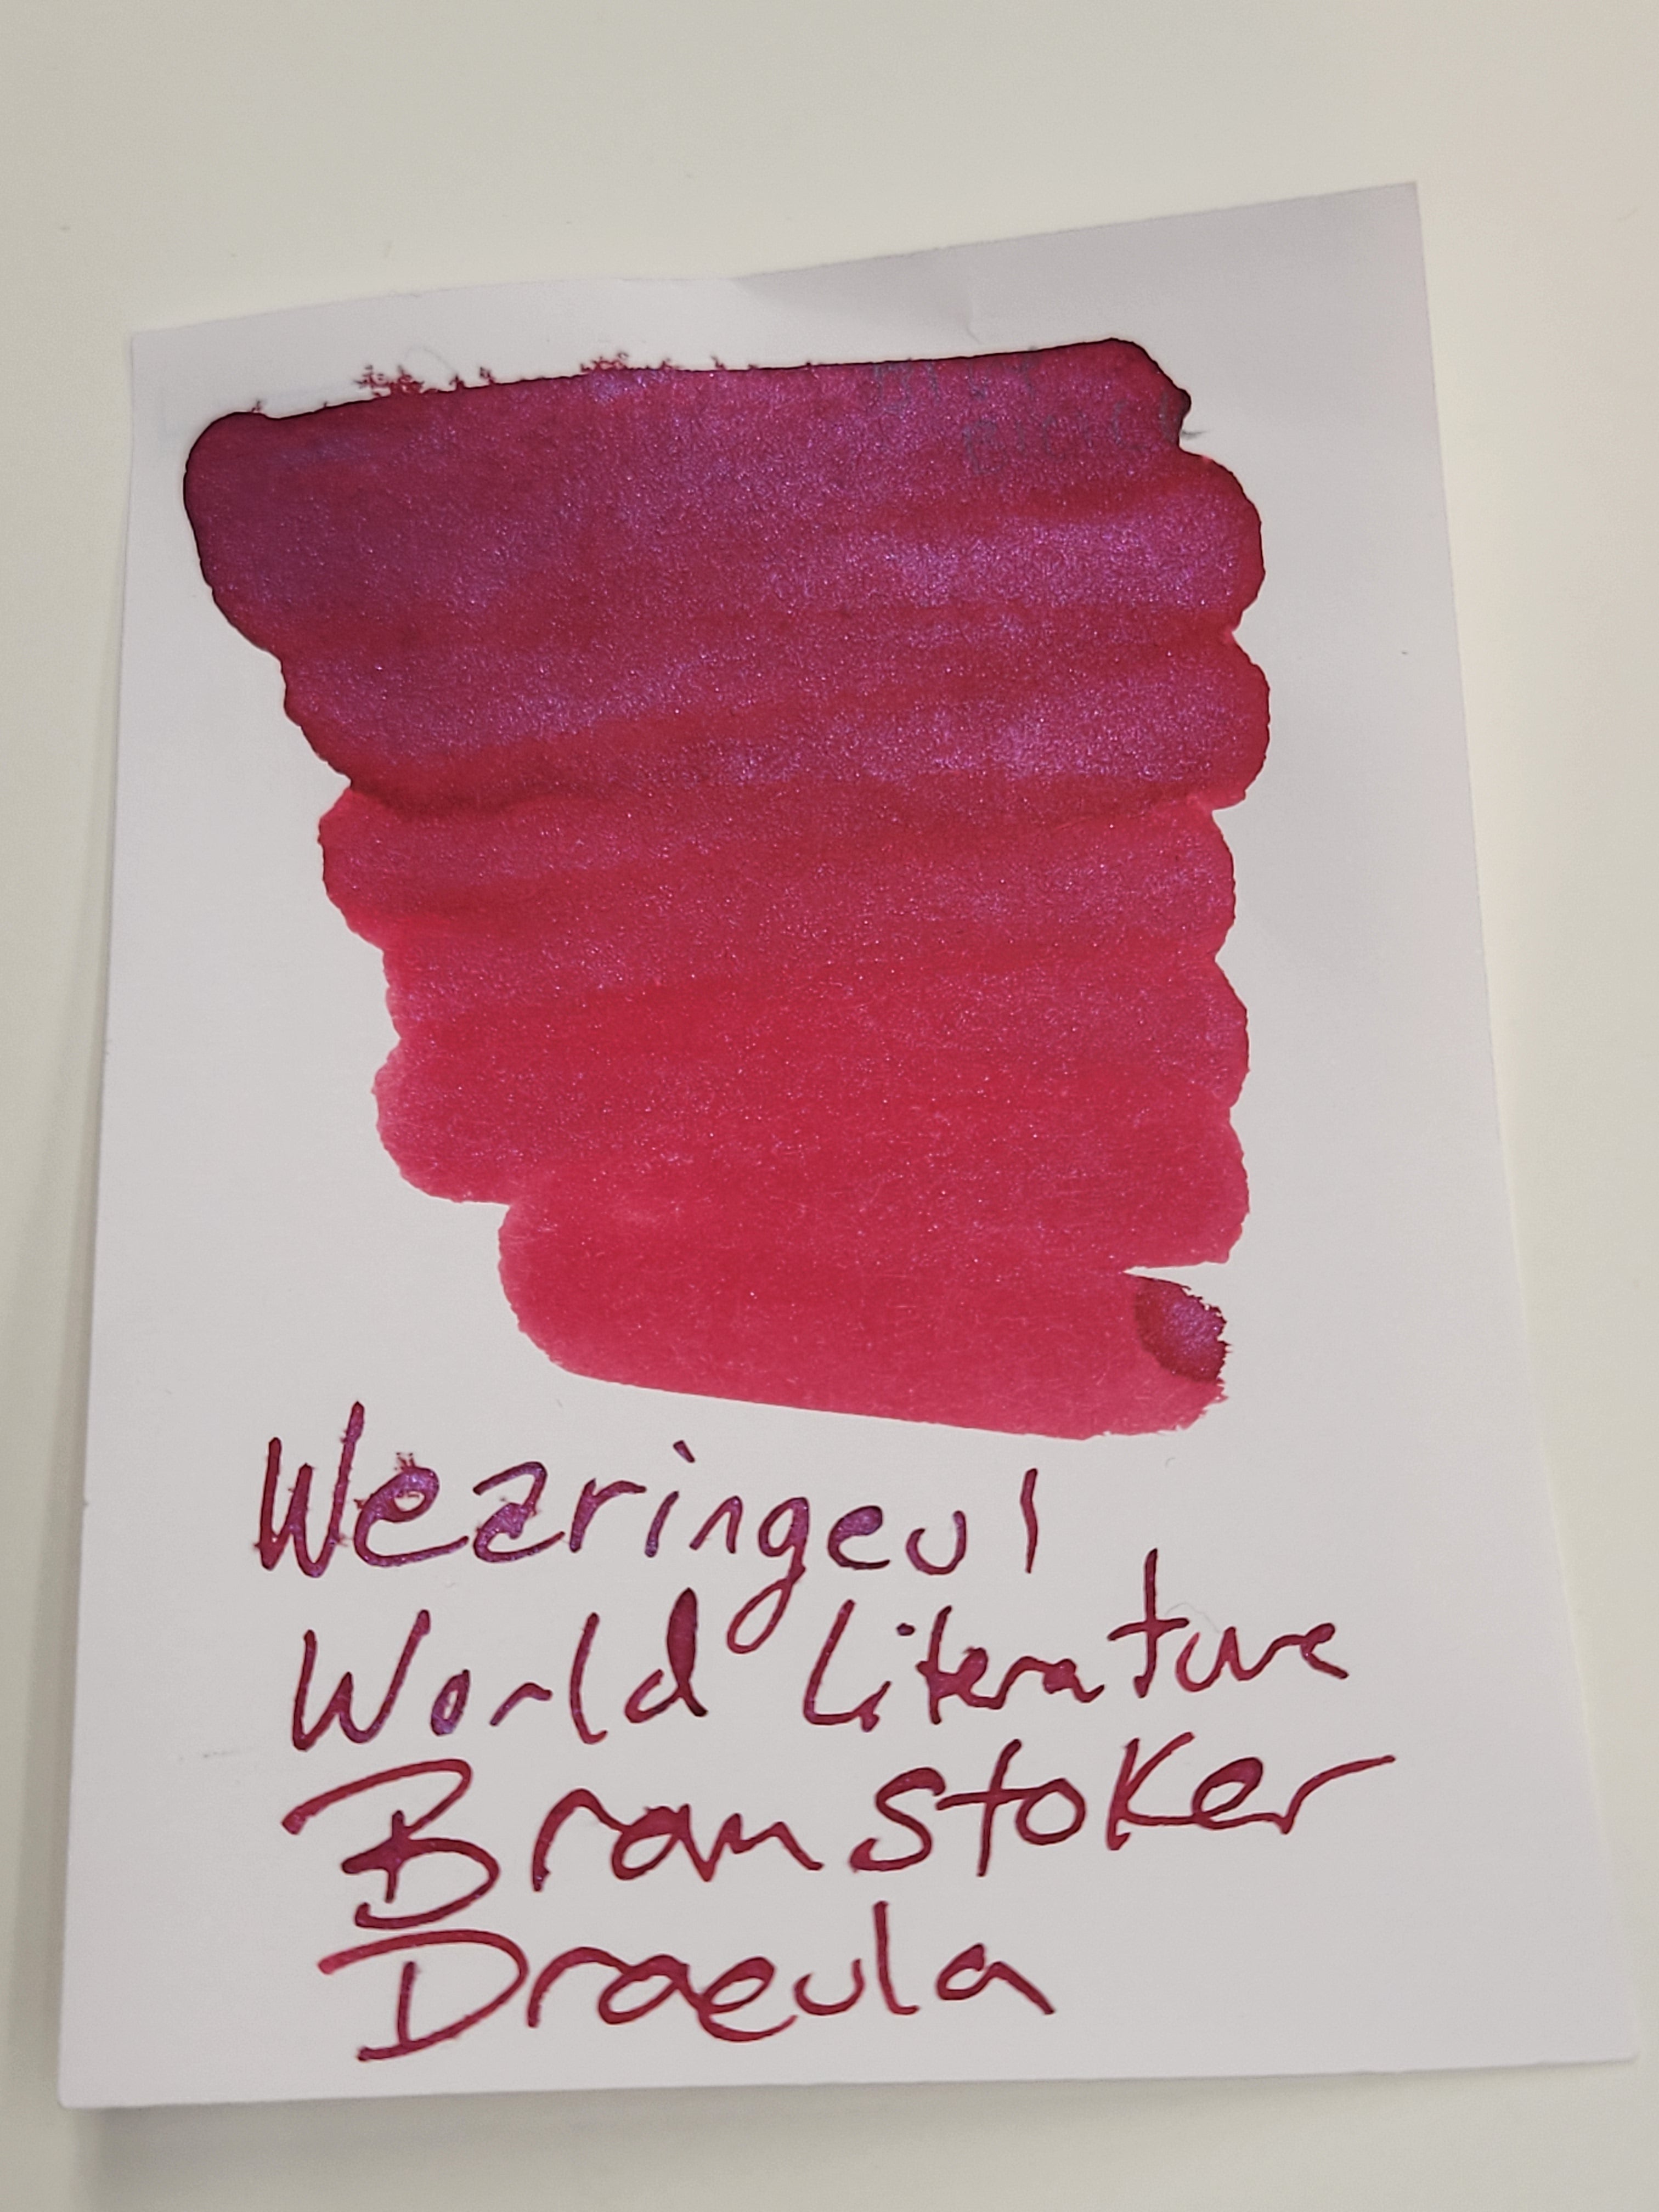 Wearingeul
World Literature
Bram Stoker
Dracula